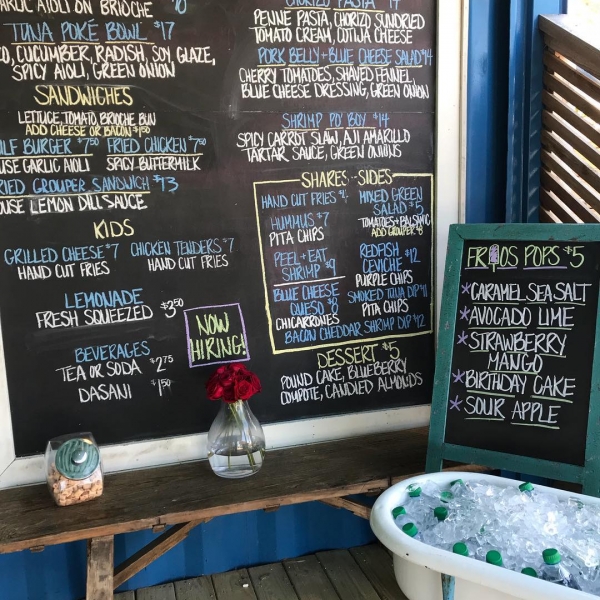 GARLIC AIOLI ON BRIOCHE
TUNA POKÉ BOWL $17
CUCUMBER, RADISH, SOY, GLAZE,
SPICY AIOLI, GREEN ONION
SANDWICHES
LETTUCE, TOMATO, BRIOCHE BUN
ADD CHEESE OR BACON $1.50
BURGER $7.50 FRIED CHICKEN $7.50
GARLIC AIOLI SPICY BUTTERMILK
FRIED GROUPER SANDWICH $13
LEMON DILL SAUCE
KIDS
GRILLED CHEESE $7 CHICKEN TENDERS $7
HAND CUT FRIES HAND CUT FRIES
LEMONADE
FRESH SQUEEZED $3.50
BEVERAGES
TEA OR SODA $2.75
DASANI $1.50
NOW
HIRING!
CHORIZO PASTA $14
PENNE PASTA, CHORIZO SUNDRIED
TOMATO CREAM, COTIJA CHEESE
PORK BELLY + BLUE CHEESE SALAD $14
CHERRY TOMATOES, SHAVED FENNEL,
BLUE CHEESE DRESSING, GREEN ONION
SHRIMP PO' BOY $14
SPICY CARROT SLAW, AJI AMARILLO
TARTAR SAUCE, GREEN ONIONS
SHARES - SIDES
HAND CUT FRIES $4
HUMMUS $7
PITA CHIPS
PEEL + EAT
SHRIMP $9
BLUE CHEESE
QUESO $8
CHICARRONES
MIXED GREEN
SALAD $5
TOMATOES + BALSAMIC
ADD GROUPER $8
REDFISH
CEVICHE $12
PURPLE CHIPS
SMOKED TUNA DIP $11
PITA CHIPS
BACON CHEDDAR SHRIMP DIP $12
DESSERT $5
POUND CAKE, BLUEBERRY
COMPOTE, CANDIED ALMONDS
FRIOS POPS $5
*CARAMEL SEA SALT
*AVOCADO LIME
*STRAWBERRY
MANGO
*BIRTHDAY CAKE
*SOUR APPLE